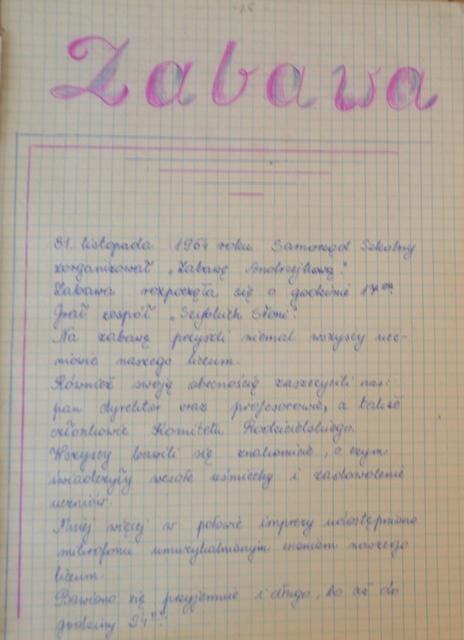 Zabawa
31. listopada 1964 roku Samorząd Szkolny
zorganizował „Zabawę Andrzejkową".
Zabawa rozpoczęła się o godzinie 17⁰⁰.
Grał zespół „Szyfoluch Słoni".
Na zabawę przyszli niemal wszyscy ucz-
niowie naszego liceum.
Również swoją obecnością zaszczycili nas:
pan dyrektor oraz profesorowie, a także
członkowie Komitetu Rodzicielskiego.
Wszyscy bawili się znakomicie, o czym
świadczyły wesołe uśmiechy i zadowolenie
uczniów.
Mniej więcej w połowie imprezy udostępniono
mikrofonu umuzykalnionym uczniom naszego
liceum.
Bawiono się przyjemnie i długo, bo aż do
godziny 24⁰⁰!